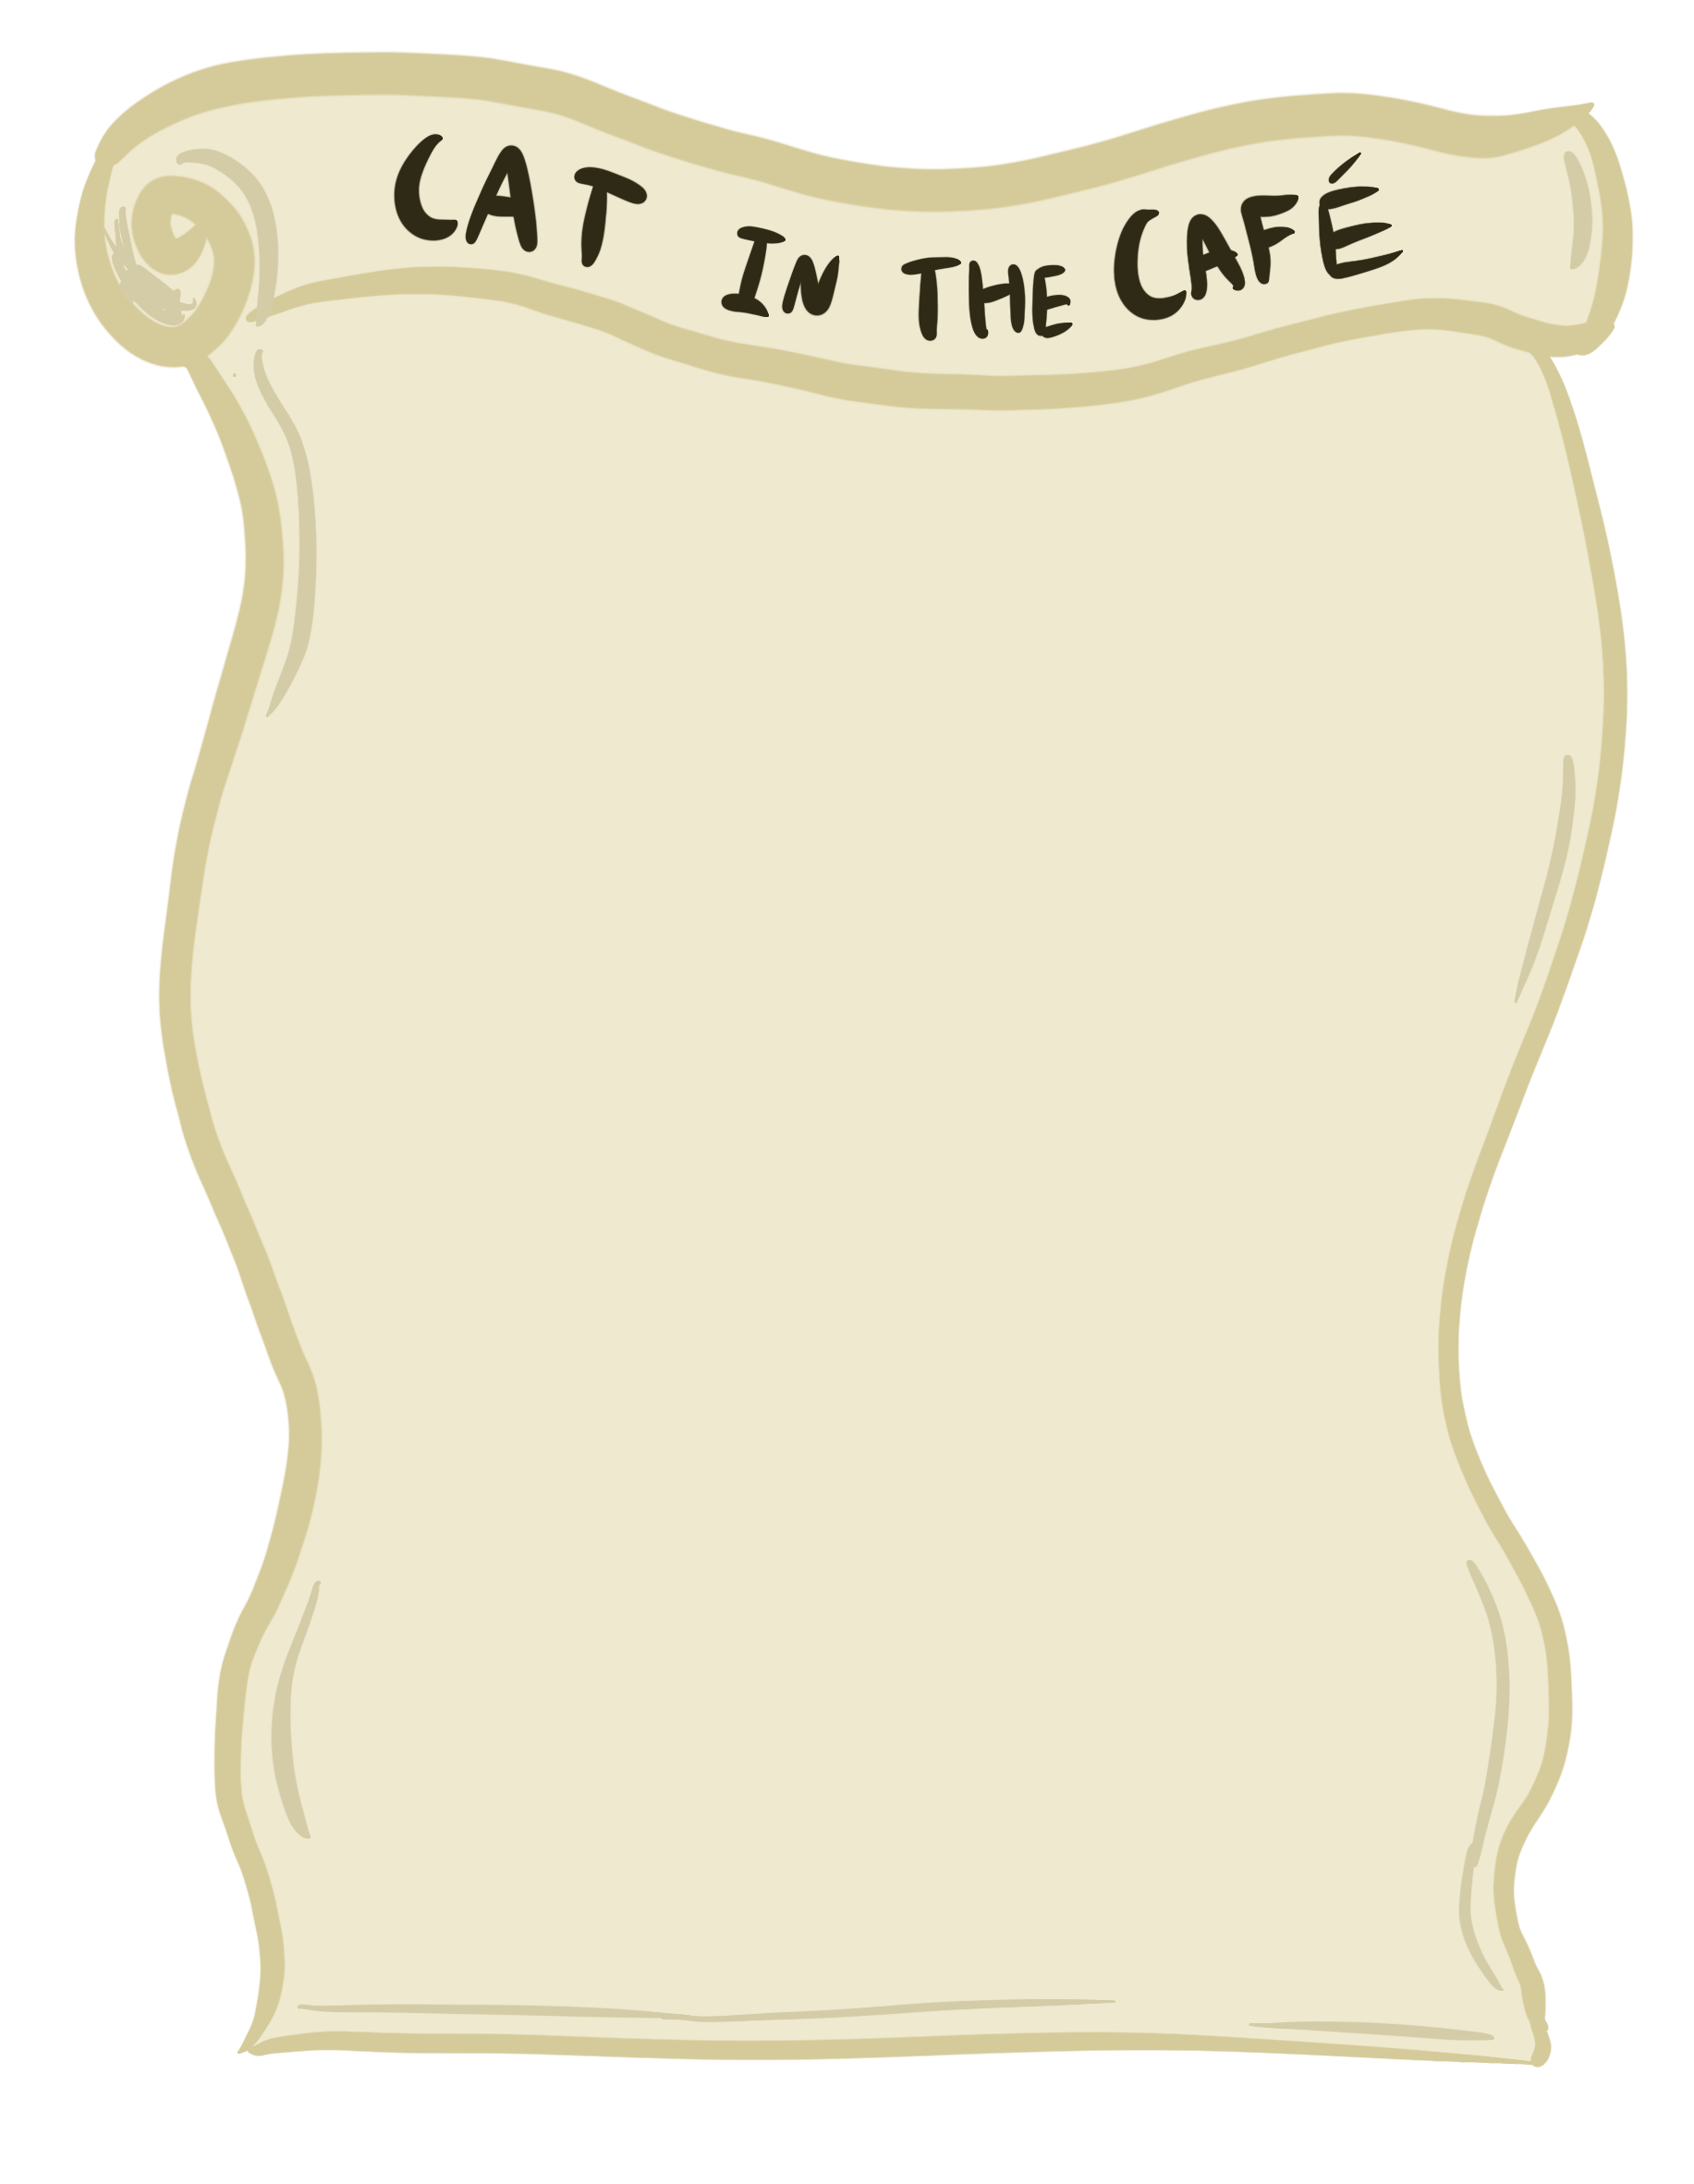 CAT IN THE CAFÉ